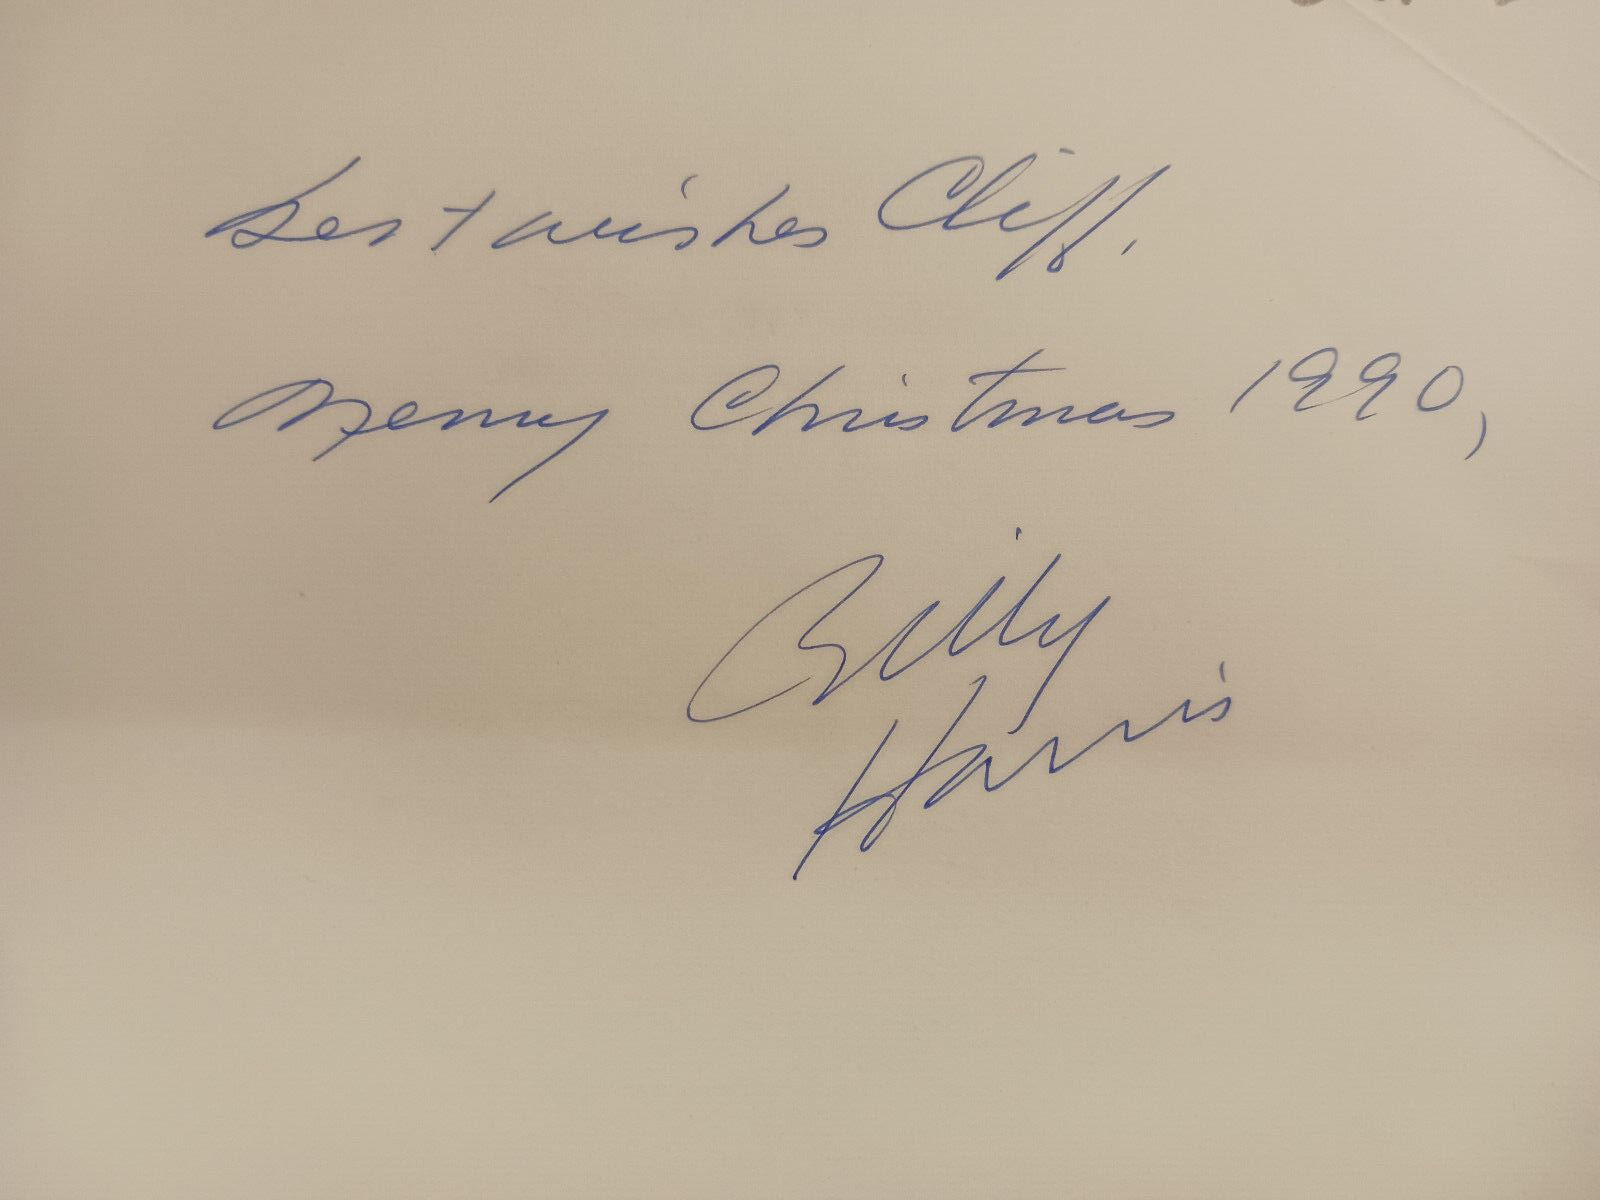 Best wishes Cliff,
Merry Christmas 1990,
Billy
Harris